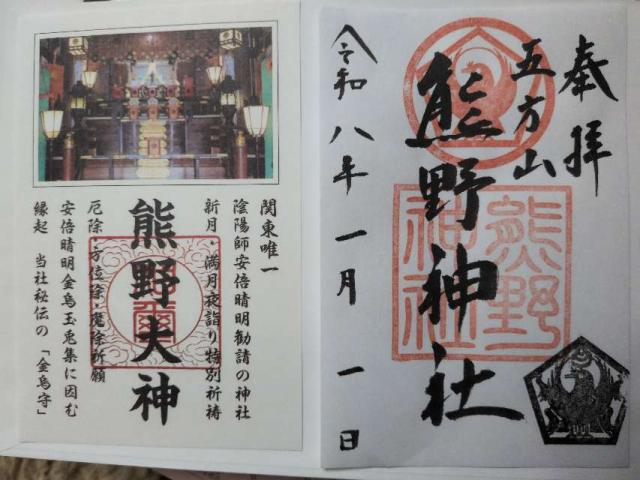 奉拝
五方山
熊野神社
熊野神社
令和八年一月一日
関東唯一
陰陽師安倍晴明勧請の神社
新月・満月夜詣り特別祈祷
熊野大神
厄除・方位除・魔除祈願
安倍晴明金烏玉兎集に因む
縁起 当社秘伝の「金烏守」